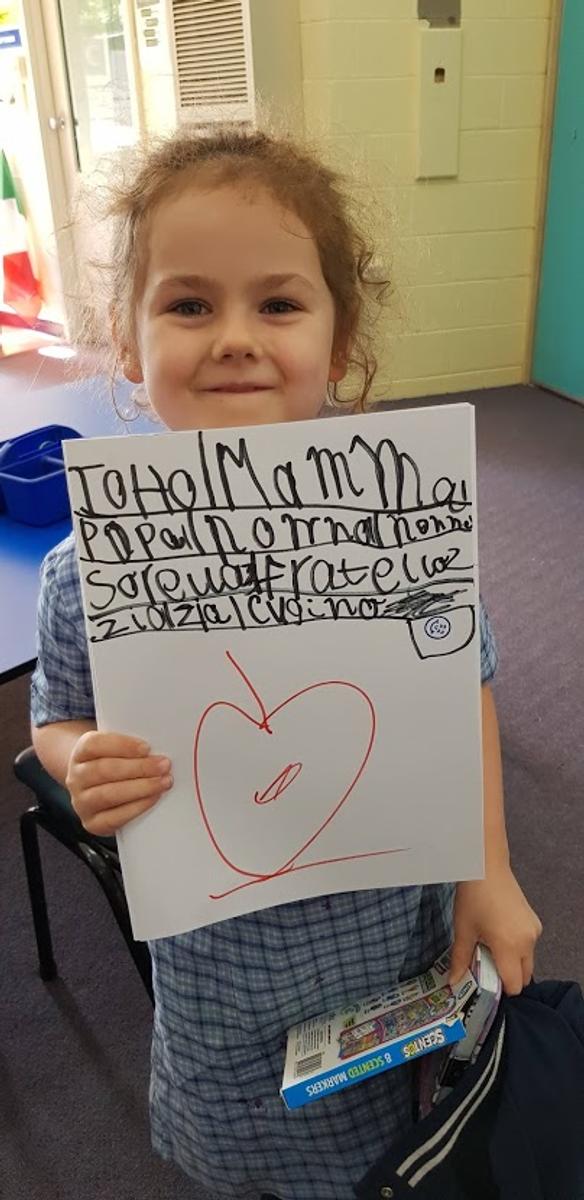 IOHO|MaMMa|
Papa|nonna|nonno
Sorella|Fratello
zio|zia|cugino
SCENTOS
8 SCENTED MARKERS